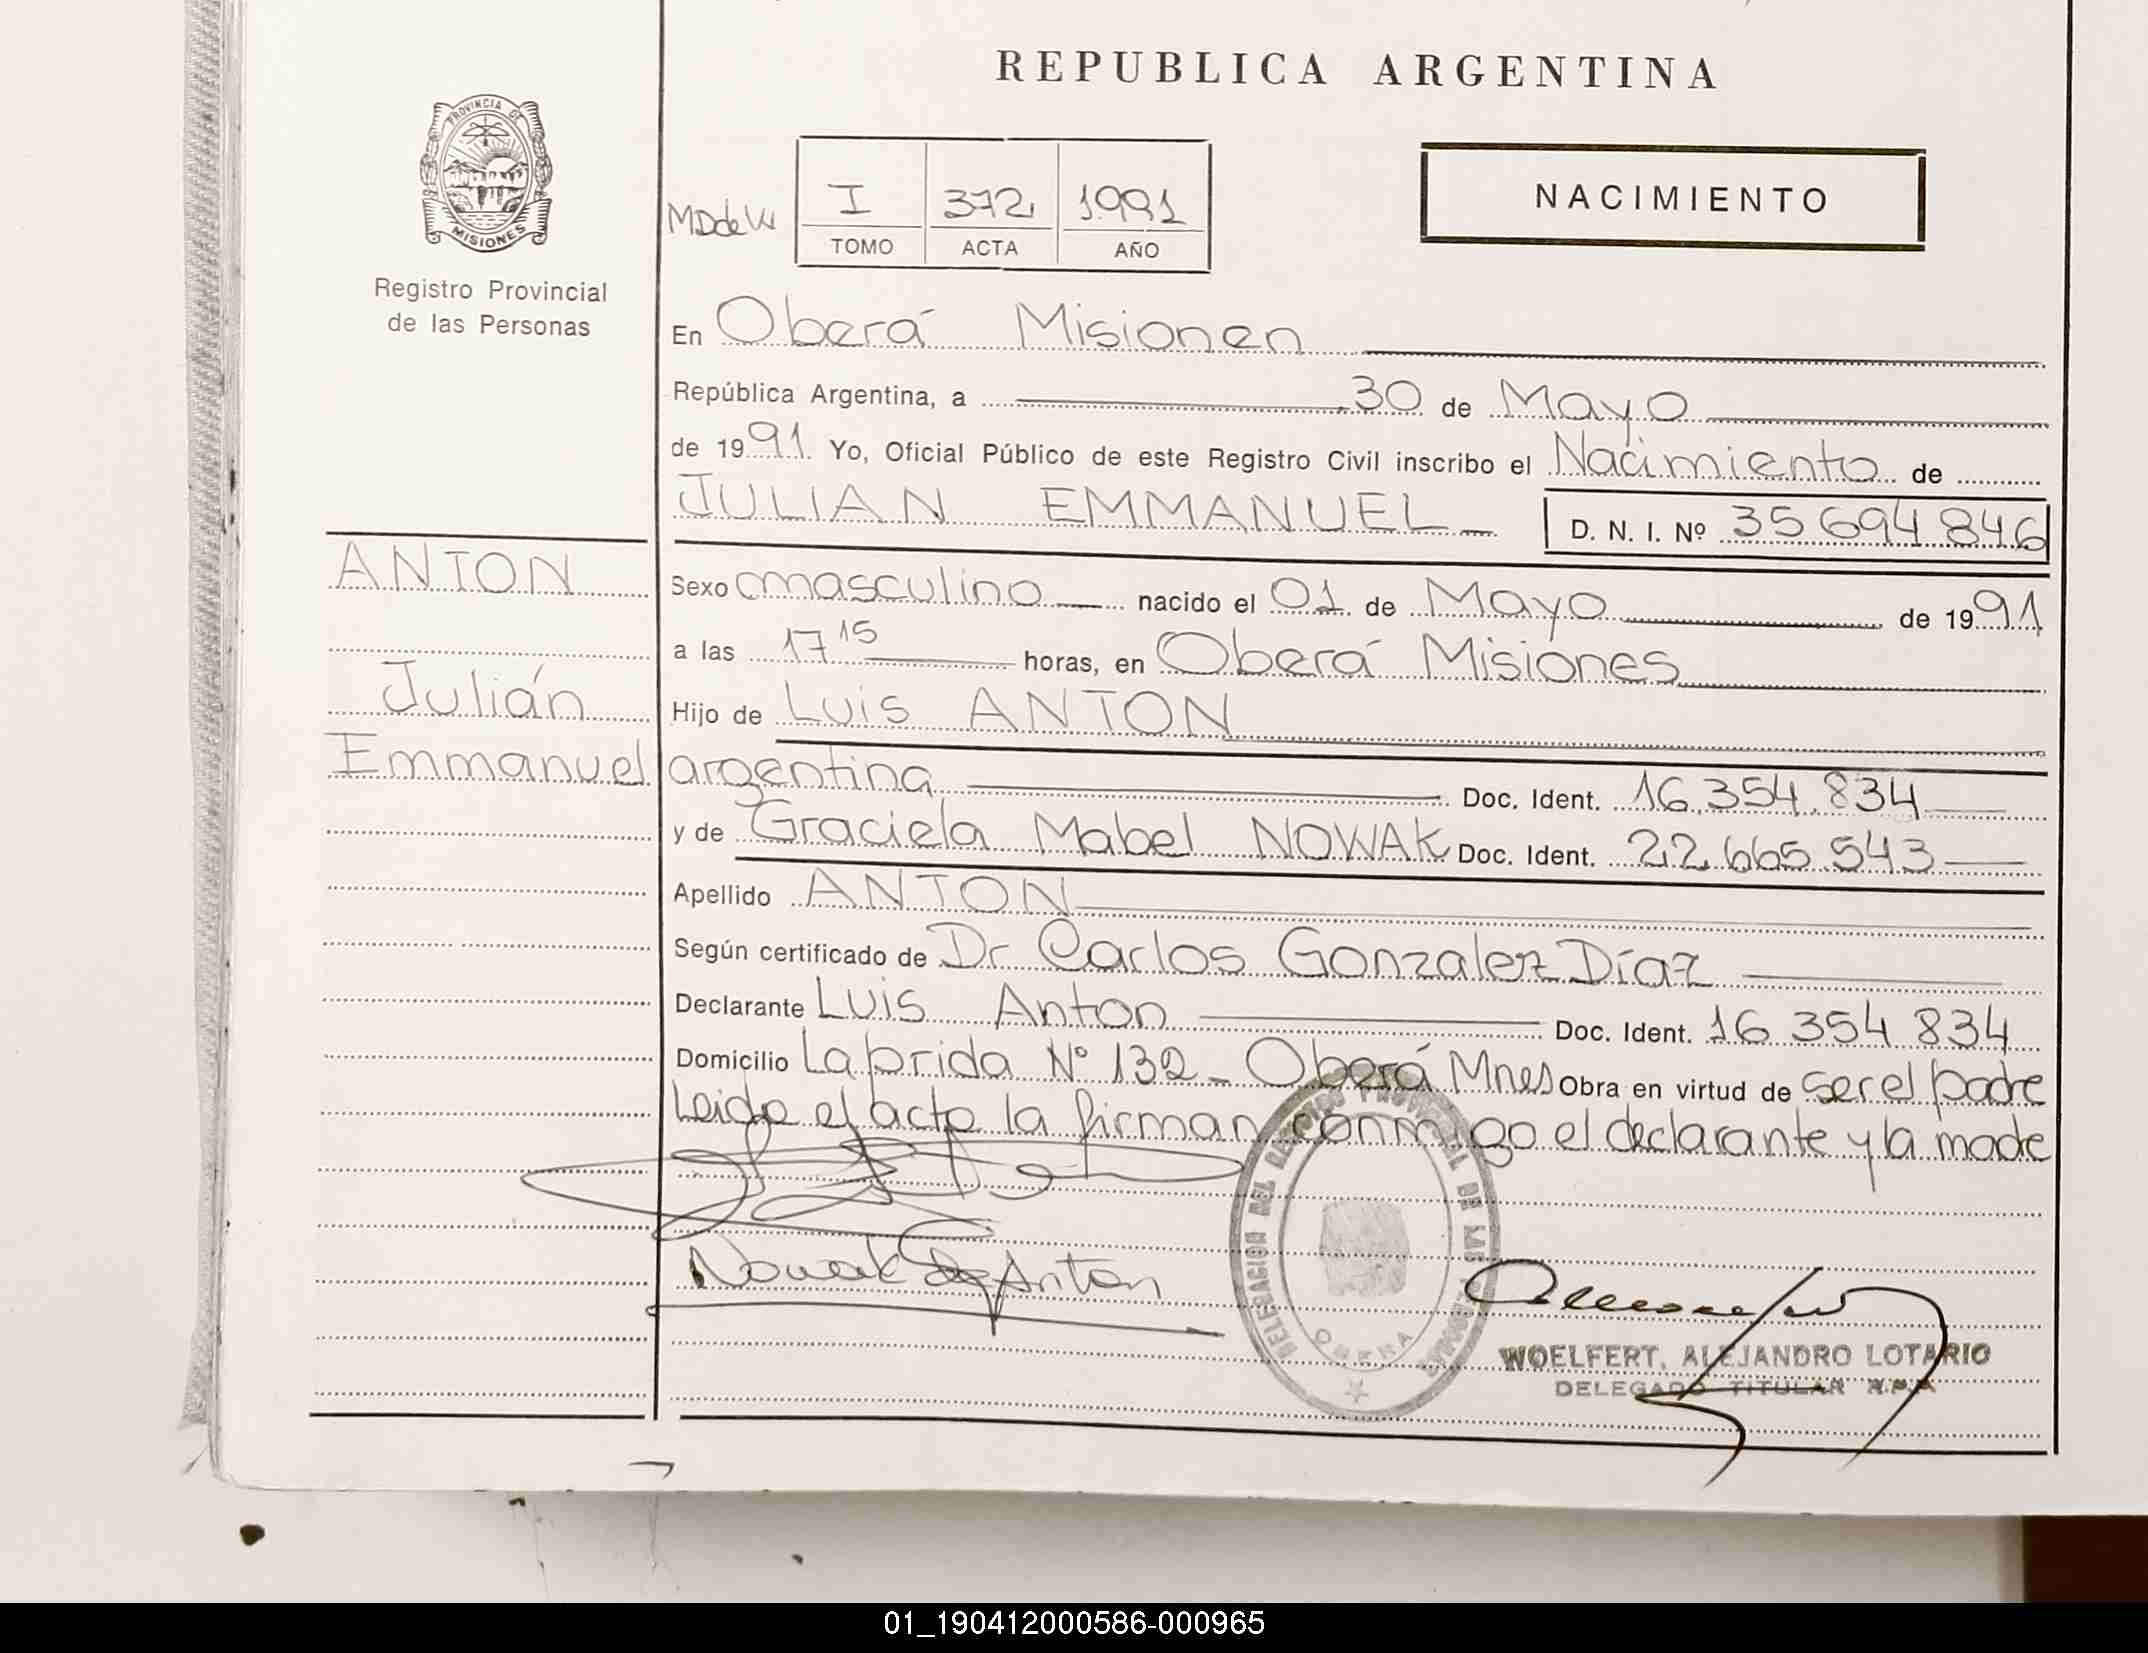 REPUBLICA ARGENTINA
PROVINCIA DE
MISIONES
Registro Provincial
de las Personas
MDdeW
I 372 1991
TOMO ACTA AÑO
NACIMIENTO
En Oberá Misionen
República Argentina, a 30 de Mayo
de 1991. Yo, Oficial Público de este Registro Civil inscribo el Nacimiento de
JULIAN EMMANUEL D. N. I. Nº 35 694 846
ANTON
Sexo masculino nacido el 01 de Mayo de 1991
a las 17 15 horas, en Oberá Misiones
Julián
Hijo de Luis ANTON
Emmanuel
argentina Doc. Ident. 16.354.834
y de Graciela Mabel NOWAK Doc. Ident. 22.665.543
Apellido ANTON
Según certificado de Dr Carlos Gonzalez Díaz
Declarante Luis Anton Doc. Ident. 16 354 834
Domicilio Laprida Nº 132 - Oberá Mnes Obra en virtud de ser el padre
Leida el acta la firman conmigo el declarante y la madre
DELEGACION DEL REGISTRO PROVINCIAL DE LAS PERSONAS
OBERA
Nowak de Anton
WOELFERT, ALEJANDRO LOTARIO
DELEGADO TITULAR R.P.P.
01_190412000586-000965